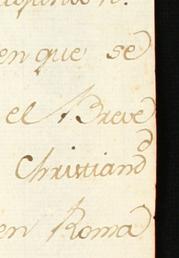 en que se
el Breve
Christiand
en Roma